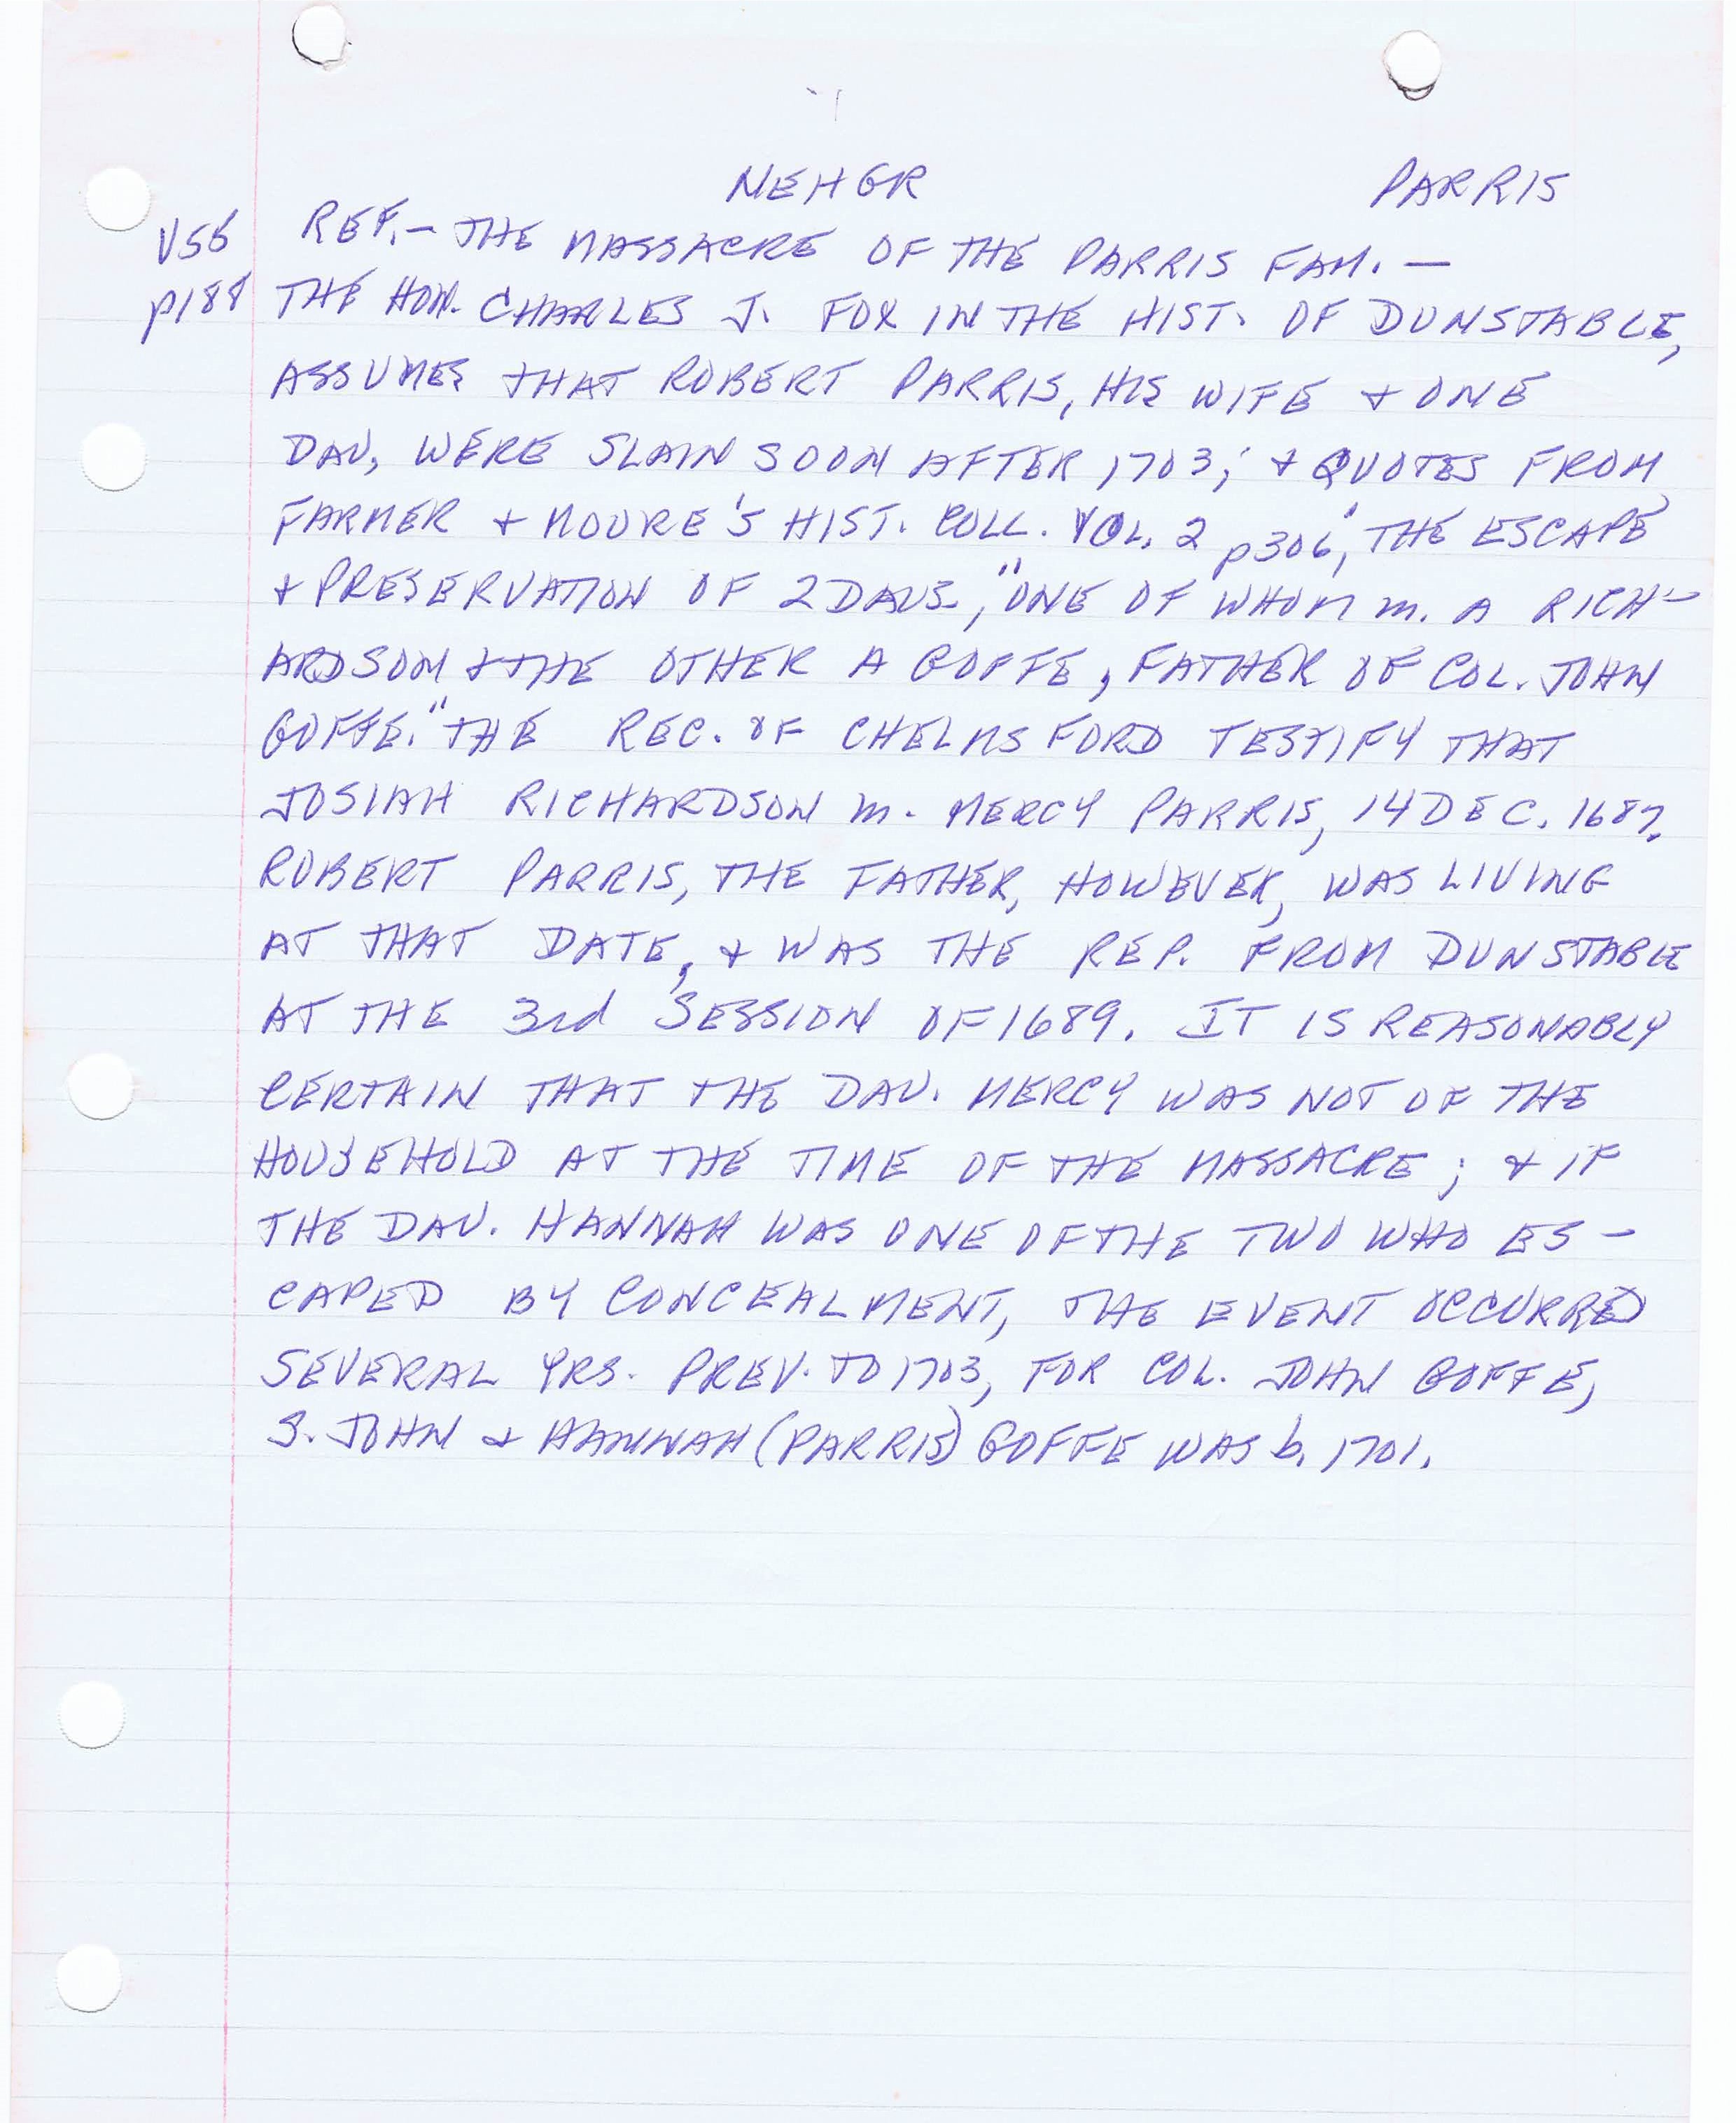 NEHGR PARRIS
V56 REF. - THE MASSACRE OF THE PARRIS FAM. —
p188 THE HON. CHARLES J. FOX IN THE HIST. OF DUNSTABLE,
ASSUMES THAT ROBERT PARRIS, HIS WIFE + ONE
DAU, WERE SLAIN SOON AFTER 1703; + QUOTES FROM
FARMER + MOORE'S HIST. COLL. VOL. 2 p306, "THE ESCAPE
+ PRESERVATION OF 2 DAUS.," "ONE OF WHOM m. A RICH-
ARDSON + THE OTHER A GOFFE, FATHER OF COL. JOHN
GOFFE." THE REC. OF CHELMSFORD TESTIFY THAT
JOSIAH RICHARDSON m. MERCY PARRIS, 14 DEC. 1687.
ROBERT PARRIS, THE FATHER, HOWEVER, WAS LIVING
AT THAT DATE, + WAS THE REP. FROM DUNSTABLE
AT THE 3rd SESSION OF 1689. IT IS REASONABLY
CERTAIN THAT THE DAU. MERCY WAS NOT OF THE
HOUSEHOLD AT THE TIME OF THE MASSACRE; + IF
THE DAU. HANNAH WAS ONE OF THE TWO WHO ES-
CAPED BY CONCEALMENT, THE EVENT OCCURRED
SEVERAL YRS. PREV. TO 1703, FOR COL. JOHN GOFFE,
S. JOHN + HANNAH (PARRIS) GOFFE WAS b. 1701.